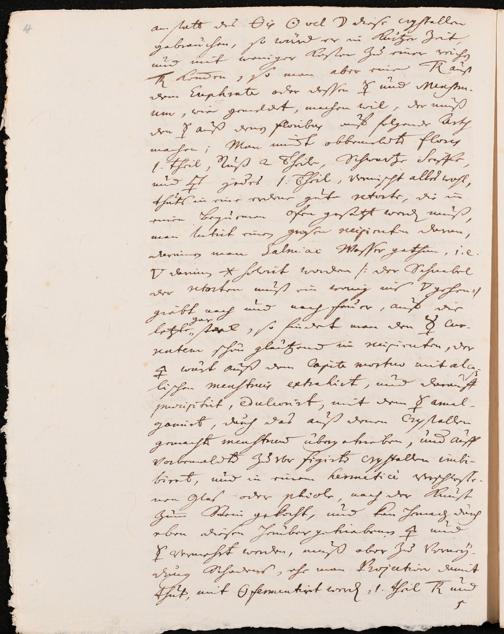 anstatt des Θis Θ oder ∇ diese crystallen
gebrauchen, so würde er in kurtzer Zeit
und mit weniger Kosten zu einer reichen
kommen, so man aber eine aus
dem Euphrate oder dessen ☿ und Menstru-
um, wie gemeldet, machen wil, der muß
den ☿ auß denen floribus auf folgende Arth
machen; Man nimt obbemeldte flores
1. theil, Ruß 2 Theile, Schwartze Seiffe,
und jedes 1. Theil, vermischt alles wohl,
thuts in eine erdene gute retorte, die in
einen ofen gesetzt werden muß,
man lutirt einen großen recipienten daran,
darinnen man Salmiac Wasser gethan, i.e.
∇ darinn ⚹ solvirt worden /: der Schnabel
der retorten muß ein wenig ins ∇ gehen :/
giebt nach und nach feuer, auf die
letzte gar starck, so findet man den ☿ cur-
rentem schön gläntzend im recipienten, der
🜍 wird auß dem Capite mortuo mit alca-
lischen menstruis extrahirt, und darauff
praecipitirt, edulcorirt, mit dem ☿ amal-
gamirt, durch das auß denen Crystallen
gemachte menstruum übergetrieben, und auff
vorbemeldte zuvor figirte crystallen imbi-
birt, und in einem hermeticè verschloße-
nen glas oder phiole, nach der Kunst
zum Stein gekocht, und kan hernach durch
eben diesen herübergetriebenen 🜍 und
☿ vermehrt werden, muß aber zu vermey-
dung Schadens, ehe man Projection damit
thut, mit ☉ fermentirt werden, 1. theil und
5